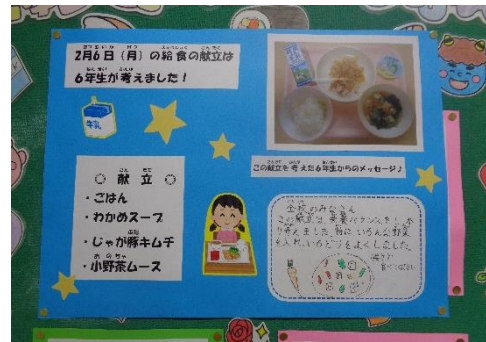 2月6日（月）の給食の献立は
6年生が考えました！
牛乳
○ 献立 ○
・ごはん
・わかめスープ
・じゃが豚キムチ
・小野茶ムース
この献立を考えた6年生からのメッセージ♪
全校のみなさん
この献立は、栄養バランスをし
考えました。特に、いろんな野菜
を入れ、いろどりをよくしました。